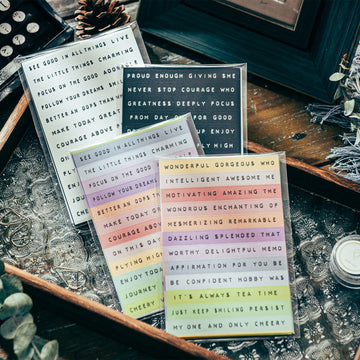 SEE GOOD IN ALL THINGS LIVE
THE LITTLE THINGS CHARMING
FOCUS ON THE GOOD ADORE
FOLLOW YOUR DREAMS SMILE
BETTER AN OOPS THAN
MAKE TODAY GREAT
COURAGE ABOVE
ON THIS DAY
FLYING HIGH
ENJOY
JOURNEY
CHEERY
PROUD ENOUGH GIVING SHE
NEVER STOP COURAGE WHO
GREATNESS DEEPLY FOCUS
FROM DAY FOR GOOD
UP ENJOY
FLY HIGH
SEE GOOD IN ALL THINGS LIVE
THE LITTLE THINGS CHARMING
FOCUS ON THE GOOD
FOLLOW YOUR DREAMS
BETTER AN OOPS
MAKE TODAY
COURAGE
ON THIS DAY
FLYING HIGH
ENJOY TODAY
JOURNEY
CHEERY
WONDERFUL GORGEOUS WHO
INTELLIGENT AWESOME ME
MOTIVATING AMAZING THE
WONDROUS ENCHANTING OF
MESMERIZING REMARKABLE
DAZZLING SPLENDED THAT
WORTHY DELIGHTFUL MEMO
AFFIRMATION FOR YOU BE
BE CONFIDENT HOBBY WAS
IT'S ALWAYS TEA TIME
JUST KEEP SMILING PERSIST
MY ONE AND ONLY CHEERY